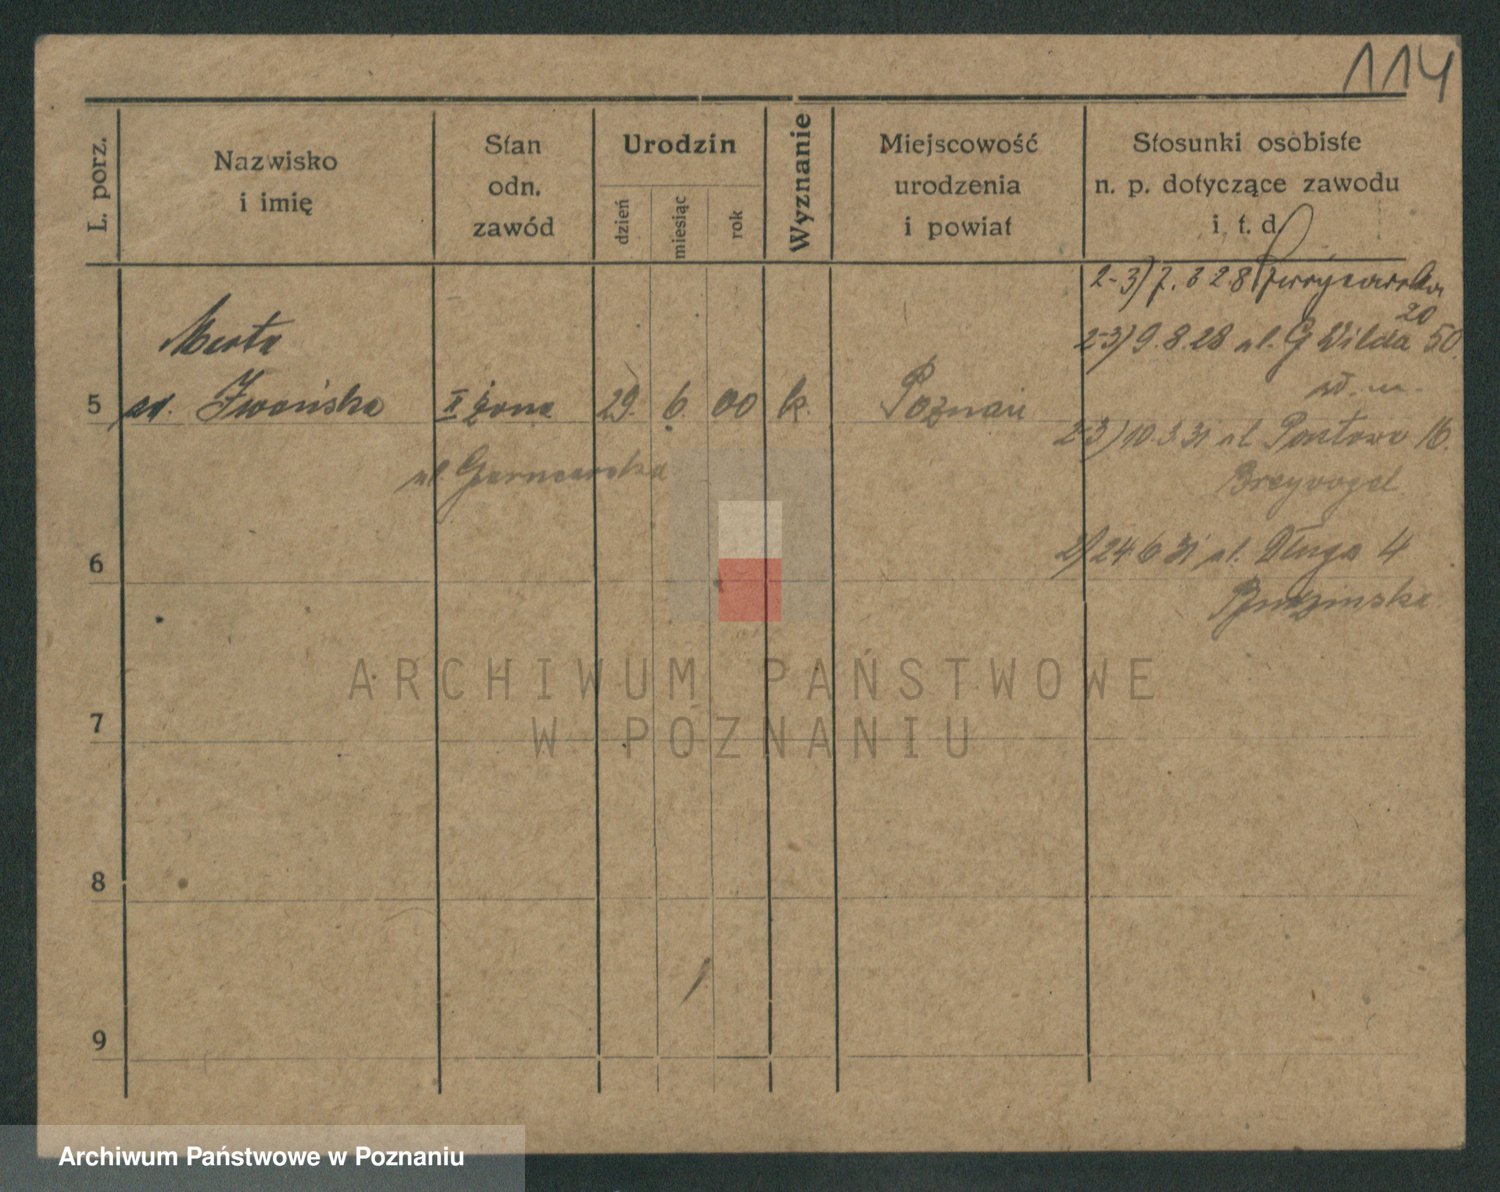 114
L. porz.
Nazwisko
i imię
Stan
odn.
zawód
Urodzin
dzień
miesiąc
rok
Wyznanie
Miejscowość
urodzenia
i powiat
Stosunki osobiste
n. p. dotyczące zawodu
i. t. d.
2-3) 7. 2 28
20
2-3) 9.8.28 ul. G Wilda 50
5 Iwańska II żona 29. 6. 00 k. Poznań
2-3) 10.3.31 ul. 16.
ul. Garncarska
Breyvogel
6
2) 24.6 31 ul. Długa 4
ARCHIWUM PAŃSTWOWE
W POZNANIU
7
8
9
Archiwum Państwowe w Poznaniu